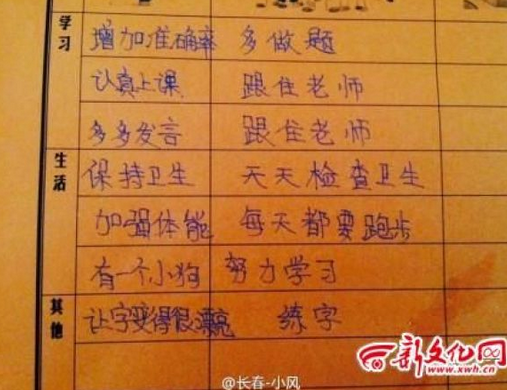 学习
增加准确率 多做题
认真上课 跟住老师
多多发言 跟住老师
生活
保持卫生 天天检查卫生
加强体能 每天都要跑步
有一个小狗 努力学习
其他
让字变得很漂亮 练字
新文化网
www.xwh.cn
@长春-小风